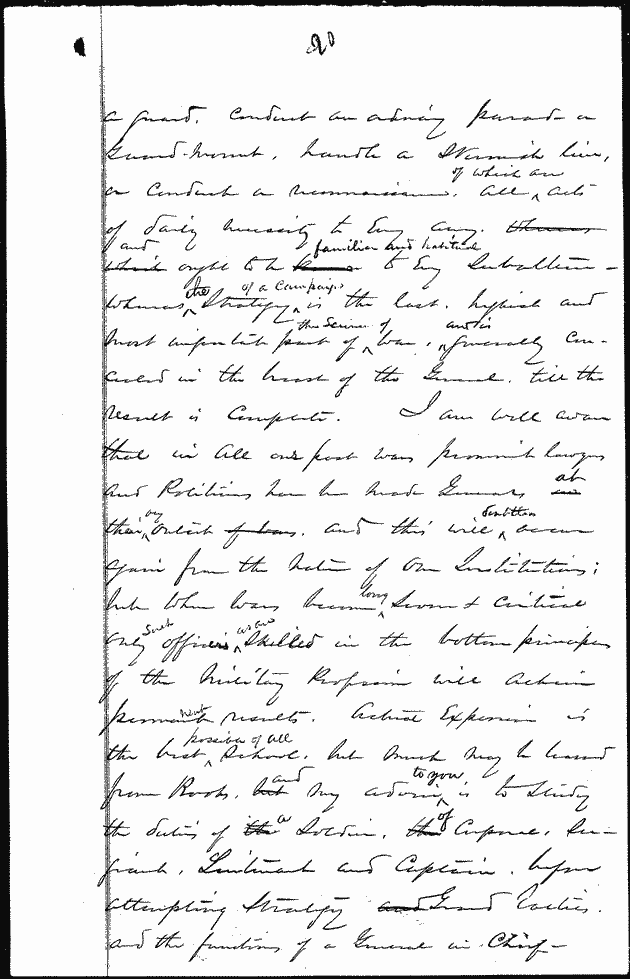 20
a guard, conduct an ordinary parade or
Guard-mount, handle a Skirmish line,
or conduct a reconnaissance. All of which are acts
of daily necessity to Every army. Whereas
which and ought to be familiar and habitual to Every Subaltern -
whereas the Strategy of a Campaign is the last, highest and
most important part of the Science of War, and is generally con-
ceived in the breast of the General, till the
result is Complete. I am well aware
that in all our past wars prominent lawyers
and Politicians have been made Generals at
their very outset of war, and this will doubtless occur
again from the Nature of our Institutions;
but when Wars become long Severe & Critical
only such officers as are Skilled in the bottom principles
of the Military Profession will achieve
permanent results. Actual Experience is
the best possible of all School, but much may be learned
from Books, but and my advice to you is to Study
the duties of the a Soldier, the of Corporal, Ser-
geant, Lieutenant and Captain, before
attempting Strategy and Grand Tactics,
and the functions of a General in Chief -